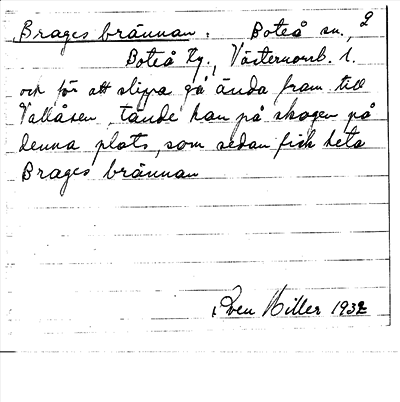 2
Brages brännan. Boteå sn.,
Boteå tg., Västernorrl. l.
och för att slippa gå ända fram till
Vallåsen, tände han på skogen på
denna plats, som sedan fick heta
Brages brännan
Sven Hiller 1932